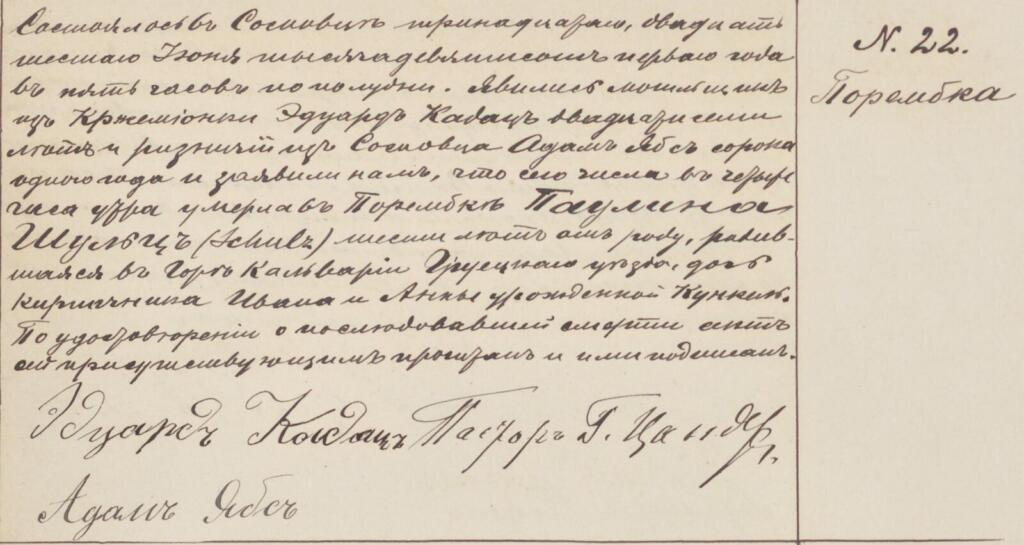 Состоялось въ Сосновицѣ тринадцатаго, двадцать
шестаго Іюня тысяча девятисотъ перваго года
въ пять часовъ по полудни. Явились могильщикъ
изъ Кржеміонки Эдуардъ Кабацъ двадцати семи
лѣтъ и рѣзничій изъ Сосновца Адамъ Ябсъ сорока
одного года и заявили намъ, что сего числа въ четыре
часа утра умерла въ Порембкѣ Паулина
Шульцъ (Schulz) шести лѣтъ отъ роду, родив-
шаяся въ Горѣ Кальваріи Груецкаго уѣзда, дочь
кирпичника Ивана и Анны урожденной Кункель.
По удостовѣреніи о послѣдовавшей смерти актъ
сей присутствующимъ прочитанъ и ими подписанъ.
N. 22.
Порембка
Эдуардъ Кабацъ Пасторъ Г. Цандеръ
Адамъ Ябсъ